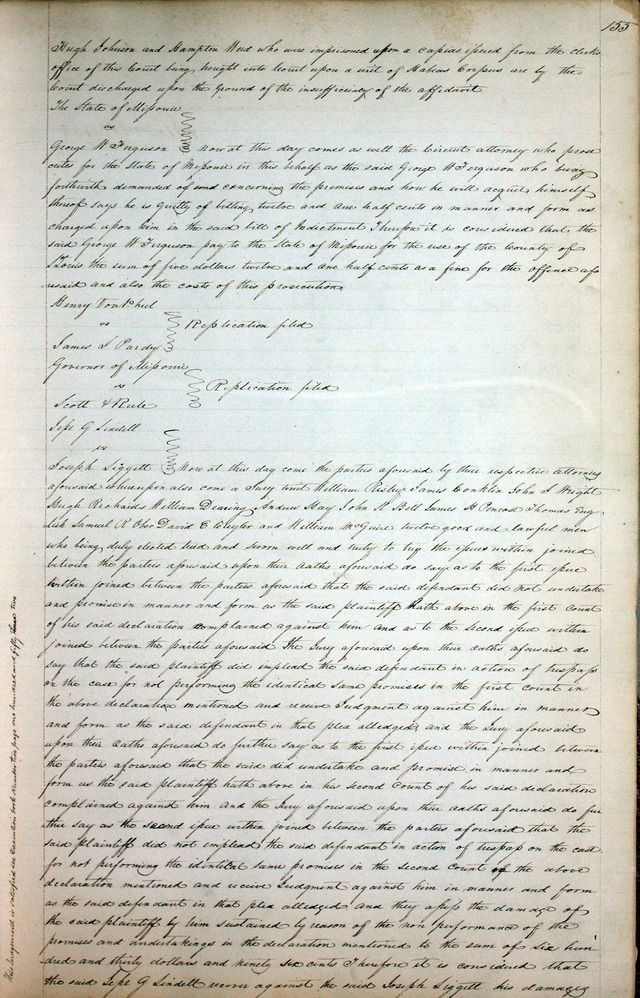 155
Hugh Johnson and Hampton Weed who were imprisoned upon a capias issued from the clerks
office of this Court being brought into Court upon a writ of Habeas Corpus are by the
Court discharged upon the Ground of the insufficiency of the affidavit
The State of Missouri
vs
George W Ferguson Now at this day comes as well the Circuit attorney who prose
cutes for the State of Missouri in this behalf as the said George W Ferguson who being
forthwith demanded of and concerning the premises and how he will acquit himself
thereof says he is Guilty of betting twelve and one half cents in manner and form as
charged upon him in the said bill of Indictment Therefore it is considered that the
said George W Ferguson pay to the State of Missouri for the use of the County of
St Louis the sum of five dollars twelve and one half cents as a fine for the offence afo
resaid and also the costs of this prosecution
Henry Von Phul
vs Replication filed
James J Purdy
Governor of Missouri
vs Replication filed
Scott & Rule
Jesse G Lindell
vs
Joseph Liggett Now at this day come the parties aforesaid by their respective attorneys
aforesaid whereupon also come a Jury towit William Risley James Conklin John J Wright
Hugh Richards William Dearing Andrew Hay John R Bell James H Penrod Thomas Eng
lish Samuel R Ober David E and William McGuire twelve good and lawful men
who being duly elected tried and sworn well and truly to try the issues within joined
between the parties aforesaid upon their oaths aforesaid do say as to the first issue
within joined between the parties aforesaid that the said defendant did not undertake
and promise in manner and form as the said plaintiff hath above in the first Count
of his said declaration complained against him and as to the second issue within
joined between the parties aforesaid the Jury aforesaid upon their oaths aforesaid do
say that the said plaintiff did implead the said defendant in action of trespass
on the case for not performing the identical same promises in the first count in
the above declaration mentioned and receive Judgment against him in manner
and form as the said defendant in that plea alledged and the Jury aforesaid
upon their oaths aforesaid do further say as to the first issue within joined between
the parties aforesaid that the said did undertake and promise in manner and
form as the said plaintiff hath above in his second Count of his said declaration
complained against him and the Jury aforesaid upon their oaths aforesaid do fur
ther say as the second issue within joined between the parties aforesaid that the
said plaintiff did not implead the said defendant in action of trespass on the case
for not performing the identical same promises in the second count of the above
declaration mentioned and receive Judgment against him in manner and form
as the said defendant in that plea alledged and they assess the damage of
the said plaintiff by him sustained by reason of the non performance of the
promises and undertakings in the declaration mentioned to the sum of six hun
dred and thirty dollars and ninety six cents Therefore it is considered that
the said Jesse G Lindell recover against the said Joseph Liggett his damages
This Judgment is satisfied see Execution book number two page one hundred and fifty three